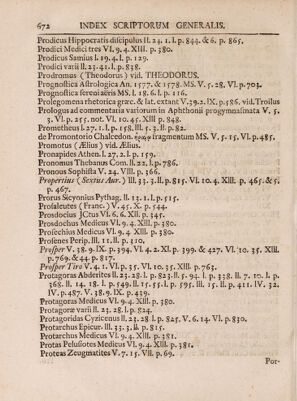 672 INDEX SCRIPTORUM GENERALIS.
Prodicus Hippocratis discipulus II. 24. 1. l. p. 844. & 6. p. 865.
Prodici Medici tres VI. 9. 4. XIII. p. 380.
Prodicus Samius l. 19. 4. l. p. 129.
Prodici varii II. 23. 41. l. p. 838.
Prodromus (Theodorus) vid. THEODORUS.
Prognostica Astrologica An. 1577. & 1578. MS. V. 5. 28. VI. p. 703.
Prognostica sereni aëris MS. I. 18. 6. l. p. 116.
Prolegomena rhetorica græc. & lat. extant V. 39. 2. IX. p. 586. vid. Troilus
Prologus ad commentaria variorum in Aphthonii progymnasmata V. 5.
3. VI. p. 255. not. VI. 10. 45. XIII p. 848.
Prometheus l. 27. 1. l. p. 158. III. 5. 3. II. p. 82.
de Promontorio Chalcedon. ἱερῷ fragmentum MS. V. 5. 15. VI. p. 485.
Promotus (Ælius) vid. Ælius.
Pronapides Athen. l. 27. 2. l. p. 159.
Pronomus Thebanus Com. II. 22. l. p. 786.
Pronous Sophista V. 24. VIII. p. 366.
Propertius (Sextus Aur.) III. 33. 3. II. p. 815. VI. 10. 4. XIII. p. 465. & 5.
p. 467.
Prorus Sicyonius Pythag. II. 13. 1. l. p. 515.
Prosaleutes (Franc.) V. 45. X. p. 544.
Prosdocius JCtus VI. 6. 6. XII. p. 345.
Prosdochus Medicus VI. 9. 4. XIII. p. 380.
Prosechius Medicus VI. 9. 4. XIII. p. 380.
Prosenes Perip. III. 11. II. p. 310.
Prosper V. 38. 9. IX. p. 394. VI. 4. 2. XI. p. 399. & 427. VI. 10. 35. XIII.
p. 769. & 44. p. 817.
Prosper Tiro V. 4. 1. VI. p. 35. VI. 10. 35. XIII. p. 763.
Protagoras Abderites II. 23. 28. l. p. 823. II. 5. 9. 1. l. p. 338. II. 7. 10. l. p.
368. II. 14. 18. l. p. 549. II. 15. 55. l. p. 595. III. 15. II. p. 411. IV. 32.
IV. p. 487. V. 38. 9. IX. p. 439.
Protagoras Medicus VI. 9. 4. XIII. p. 380.
Protagoræ varii II. 23. 28. l. p. 824.
Protagoridas Cyzicenus II. 23. 28. l. p. 825. V. 6. 14. VI. p. 830.
Protarchus Epicur. III. 33. 3. II. p. 815.
Protarchus Medicus VI. 9. 4. XIII. p. 381.
Protas Pelusiotes Medicus VI. 9. 4. XIII. p. 381.
Proteas Zeugmatites V. 7. 15. VII. p. 69.
Por-